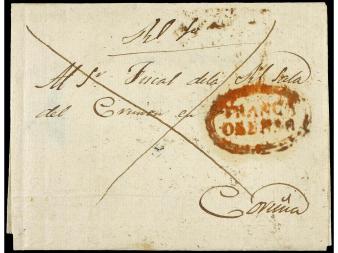 Rl Sº
Al Sr Fiscal dela Rl Sala
del Crimen en
FRANCO
ORENSE
Coruña